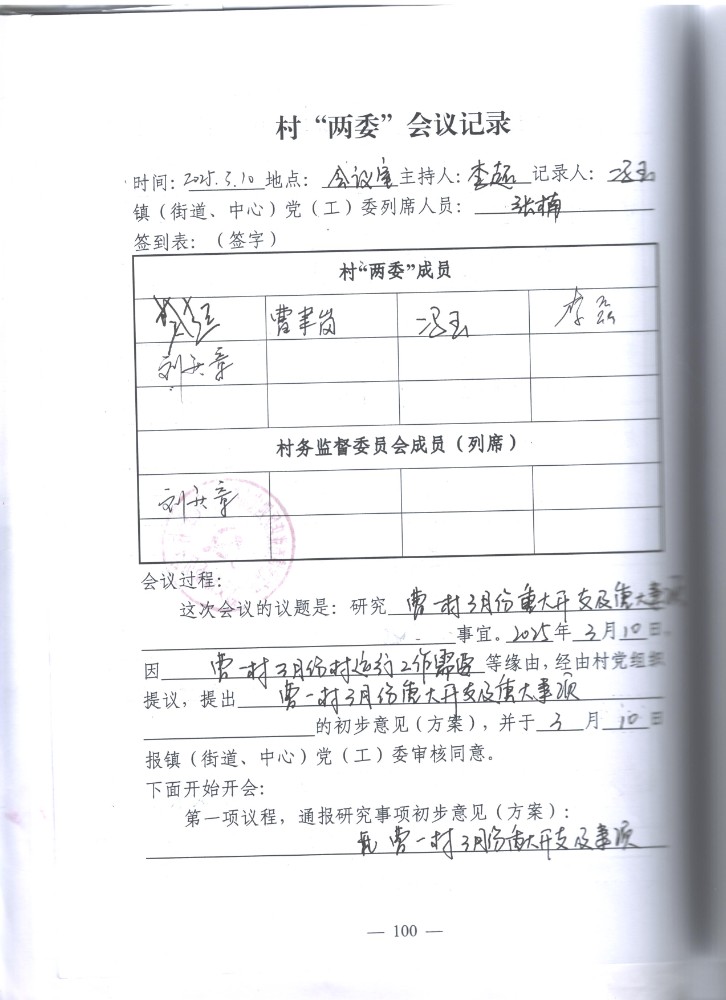 村“两委”会议记录
时间：2025.3.10 地点：会议室 主持人：李超 记录人：冯玉
镇（街道、中心）党（工）委列席人员：张楠
签到表：（签字）
村“两委”成员
曹聿岗 冯玉 李磊
刘兵章
村务监督委员会成员（列席）
刘兵章
会议过程：
这次会议的议题是：研究 曹一村3月份重大开支及重大事项
事宜。2025年3月10日，
因 曹一村3月份村运行工作需要 等缘由，经由村党组织
提议，提出 曹一村3月份重大开支及重大事项
的初步意见（方案），并于3月10日
报镇（街道、中心）党（工）委审核同意。
下面开始开会：
第一项议程，通报研究事项初步意见（方案）：
曹一村3月份重大开支及事项
— 100 —